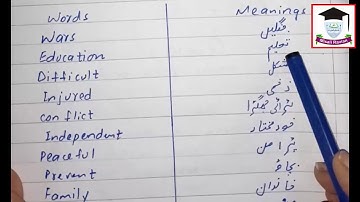 Words Meanings
Wars جنگیں
Education تعلیم
Difficult مشکل
Injured زخمی
conflict لڑائی جھگڑا
Independent خودمختار
Peaceful پرامن
Prevent بچاؤ
Family خاندان